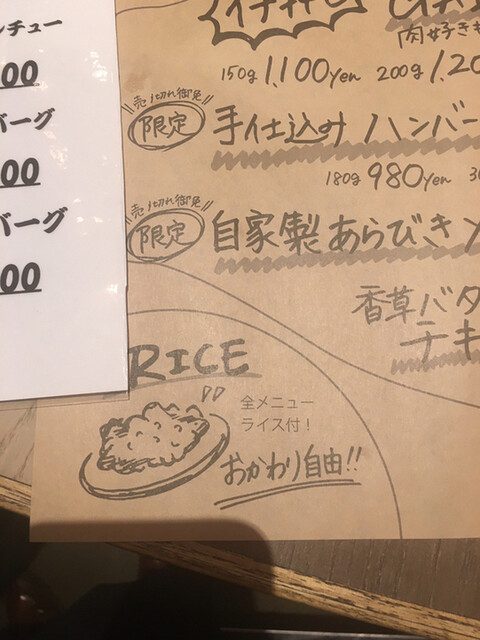 シチュー
00
バーグ
00
バーグ
00
イチオシ
肉好きも
150g 1,100yen 200g 1,20
売り切れ御免
限定
手仕込み ハンバー
180g 980yen
売り切れ御免
限定
自家製あらびき
香草バタ
チキ
RICE
全メニュー
ライス付!
おかわり自由!!